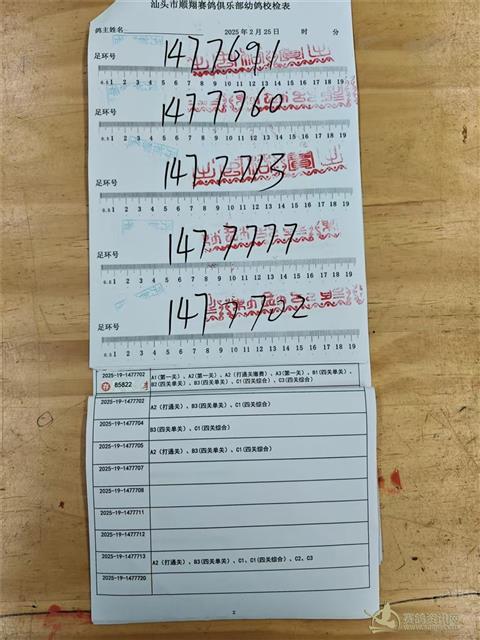 汕头市顺翔赛鸽俱乐部幼鸽校检表
鸽主姓名 2025年2月25日 时 分
足环号 1477691
0.5 1 2 3 4 5 6 7 8 9 10 11 12 13 14 15 16 17 18 19
足环号 1477760
0.5 1 2 3 4 5 6 7 8 9 10 11 12 13 14 15 16 17 18 19
足环号 1477713
0.5 1 2 3 4 5 6 7 8 9 10 11 12 13 14 15 16 17 18 19
足环号 1477777
0.5 1 2 3 4 5 6 7 8 9 10 11 12 13 14 15 16 17 18 19
足环号 1477702
0.5 1 2 3 4 5 6 7 8 9 10 11 12 13 14 15 16 17 18 19
2025-19-1477702 A1(第一关)、A2(第一关)、A2(打通关缴费)、A3(第一关)、B1(四关单关)、
85822 B2(四关单关)、B3(四关单关)、C1(四关综合)、C3(四关综合)
2025-19-1477702 A2(打通关)、B3(四关单关)、C1(四关综合)
2025-19-1477704 B3(四关单关)、C1(四关综合)
2025-19-1477705 A2(打通关)、B3(四关单关)、C1(四关综合)
2025-19-1477707
2025-19-1477708
2025-19-1477711
2025-19-1477712
2025-19-1477713 A2(打通关)、B3(四关单关)、C1、C1(四关综合)、C2、C3
2025-19-1477720
2
赛鸽资讯网